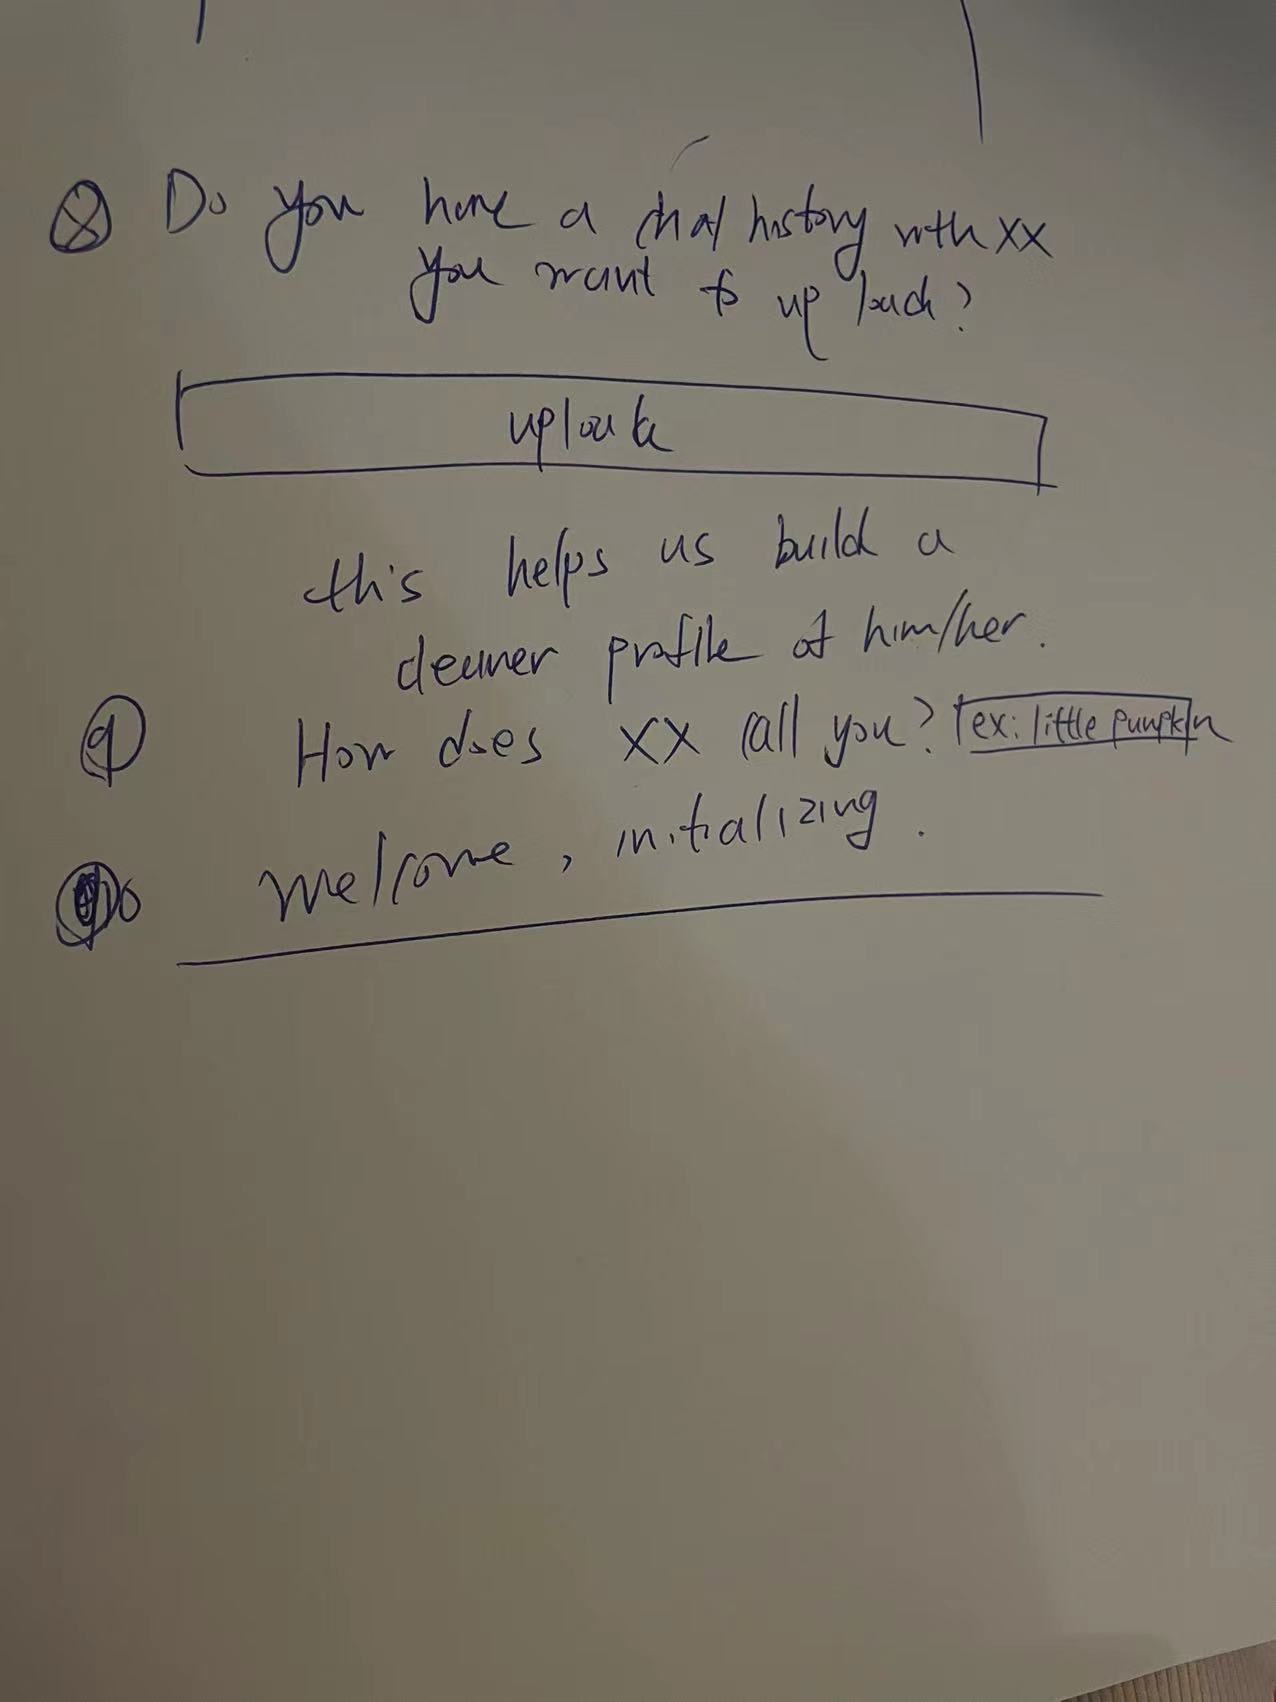 ⑧ Do you have a chat history with XX
you want to upload?
upload
this helps us build a
clearer profile of him/her.
⑨ How does XX call you? ex: little pumpkin
10 Welcome, initializing.